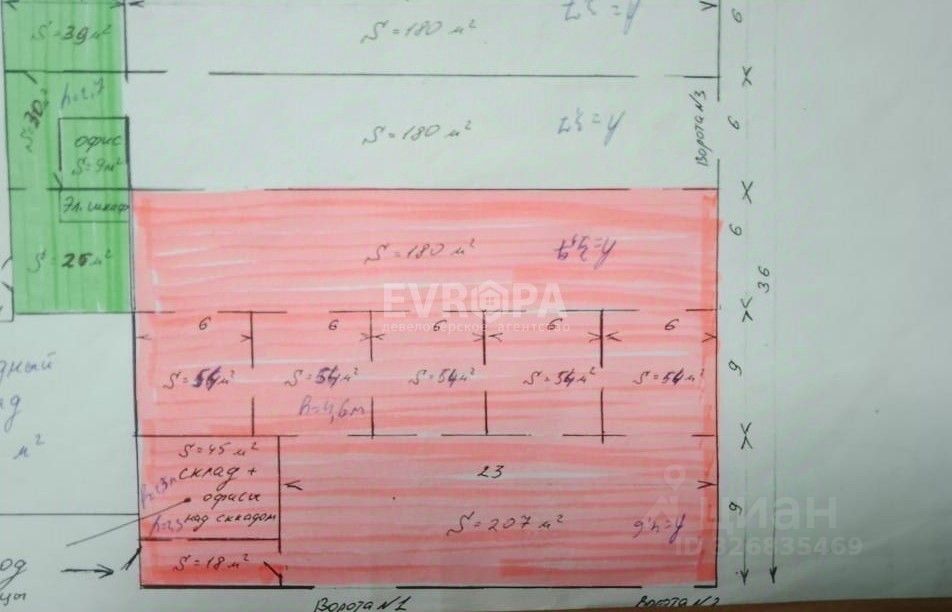 S=39м²
S=180 м²
h=3,7
6
h=2,7
S=30м²
офис
S=9м²
S=180 м²
h=3,7
Ворота №3
6
Эл. шкаф
S=25м²
S=180 м²
h=3,7
6
36
EVROPA
девелоперское агентство
6
6
6
6
6
S=54м²
S=54м²
S=54м²
S=54м²
S=54м²
9
h=4,6м
м²
S=45 м²
склад +
офисы
над складом
23
S=207 м²
h=4,6
9
циан
ID 326835469
S=18м²
Ворота №1
Ворота №2